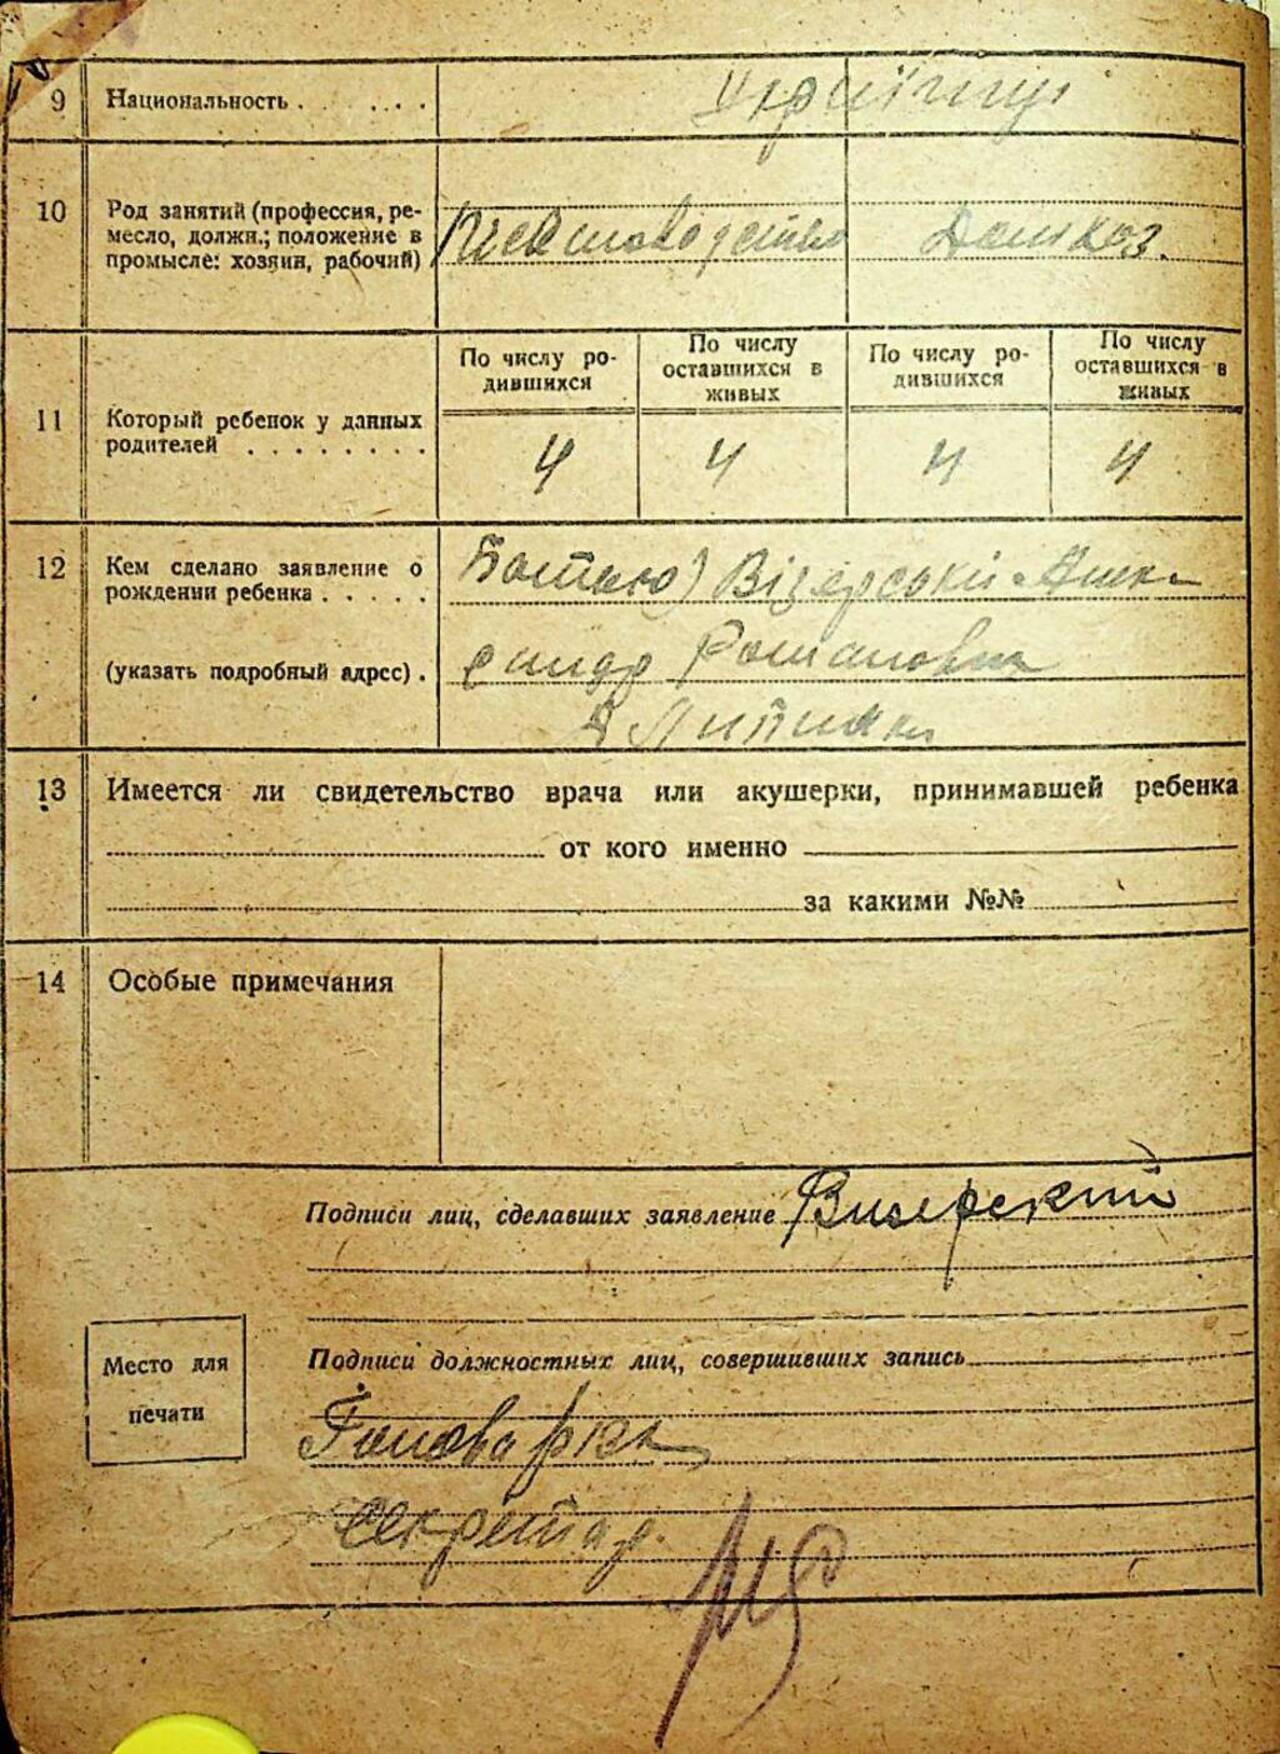 9 Национальность . . . . . Українці
10 Род занятий (профессия, ре-
месло, должн.; положение в
промысле: хозяин, рабочий) Дом хоз.
По числу ро-
дившихся
По числу
оставшихся в
живых
По числу ро-
дившихся
По числу
оставшихся в
живых
11 Который ребенок у данных
родителей . . . . . . . .
4 4 4 4
12 Кем сделано заявление о
рождении ребенка . . . . .
Батько Візерський Алек-
(указать подробный адрес) .
сандр Романович
13 Имеется ли свидетельство врача или акушерки, принимавшей ребенка
от кого именно
за какими №№
14 Особые примечания
Подписи лиц, сделавших заявление Визерский
Место для
печати
Подписи должностных лиц, совершивших запись
Голова
Секретар.